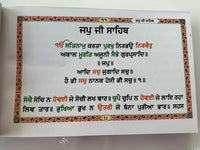 ਜਪੁ ਜੀ ਸਾਹਿਬ
ੴ ਸਤਿਨਾਮੁ ਕਰਤਾ ਪੁਰਖੁ ਨਿਰਭਉ ਨਿਰਵੈਰੁ
ਅਕਾਲ ਮੂਰਤਿ ਅਜੂਨੀ ਸੈਭੰ ਗੁਰਪ੍ਰਸਾਦਿ॥
॥ਜਪੁ॥
ਆਦਿ ਸਚੁ ਜੁਗਾਦਿ ਸਚੁ॥
ਹੈ ਭੀ ਸਚੁ ਨਾਨਕ ਹੋਸੀ ਭੀ ਸਚੁ॥੧॥
ਸੋਚੈ ਸੋਚਿ ਨ ਹੋਵਈ ਜੇ ਸੋਚੀ ਲਖ ਵਾਰ॥ ਚੁਪੈ ਚੁਪਿ ਨ ਹੋਵਈ ਜੇ ਲਾਇ ਰਹਾ
ਲਿਵ ਤਾਰ॥ ਭੁਖਿਆ ਭੁਖ ਨ ਉਤਰੀ ਜੇ ਬੰਨਾ ਪੁਰੀਆ ਭਾਰ॥ ਸਹਸ